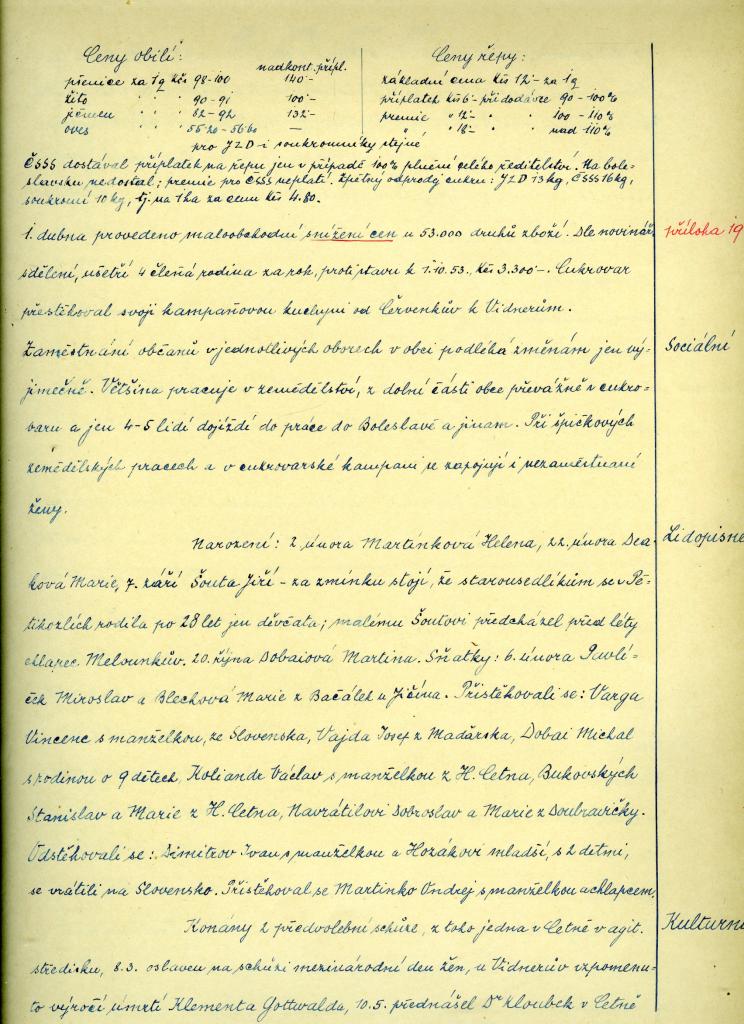 Ceny obilí: nadkont. přípl.
pšenice za 1 q Kčs 98-100 140·-
žito " " 90-91 100·-
ječmen " " 82-92 132·-
oves " " 55·20-56·60 —
Ceny řepy:
základní cena Kčs 12·- za 1 q
příplatek Kčs 6·- při dodávce 90-100%
premie " 12·- " 100-110%
" " 18·- " nad 110%
pro JZD i soukromníky stejné
ČSSS dostával příplatek na řepu jen v případě 100% plnění celého ředitelství. Na bole-
slavsku nedostal; premie pro ČSSS neplatí. Zpětný odprodej cukru: JZD 13 kg, ČSSS 16 kg,
soukromí 10 kg, tj. na 1 ha za cenu Kčs 4.80.
1. dubna provedeno maloobchodní snížení cen u 53.000 druhů zboží. Dle novinář.
příloha 19
sdělení, ušetří 4 členná rodina za rok, proti stavu k 1.10.53, Kčs 3.300·-. Cukrovar
přestěhoval svoji kampaňovou kuchyni od Červenkův k Vidnerům.
Zaměstnání občanů v jednotlivých oborech v obci podléhá změnám jen vý-
Sociální
jimečně. Většina pracuje v zemědělství, z dolní části obce převážně v cukro-
varu a jen 4-5 lidí dojíždí do práce do Boleslavě a jinam. Při špičkových
zemědělských pracech a v cukrovarské kampani se zapojují i nezaměstnané
ženy.
Narození: 2. února Martínková Helena, 22. února Dea-
Lidopisné
ková Marie, 7. září Šouta Jiří - za zmínku stojí, že starousedlíkům se v Pě-
tikozlích rodila po 28 let jen děvčata; malému Šoutovi předcházel před léty
chlapec Melounkův. 20. října Dobaiová Martina. Sňatky: 6. února Pavlí-
ček Miroslav a Blechová Marie z Bačálek u Jičína. Přistěhovali se: Varga
Vincenc s manželkou, ze Slovenska, Vajda Josef z Maďarska, Dobai Michal
s rodinou o 9 dětech, Koliandr Václav s manželkou z H. Cetna, Bukovských
Stanislav a Marie z H. Cetna, Navrátilovi Dobroslav a Marie z Doubravičky.
Odstěhovali se: Dimitrov Ivan s manželkou a Hozákovi mladší, s 2 dětmi,
se vrátili na Slovensko. Přistěhoval se Martinko Ondrej s manželkou a chlapcem.
Konány 2 předvolební schůze, z toho jedna v Cetně v agit.
Kulturní
středisku, 8.3. oslaven na schůzi mezinárodní den žen, u Vidnerův vzpomenu-
to výročí úmrtí Klementa Gottwalda, 10.5. přednášel Dr Kloubek v Cetně